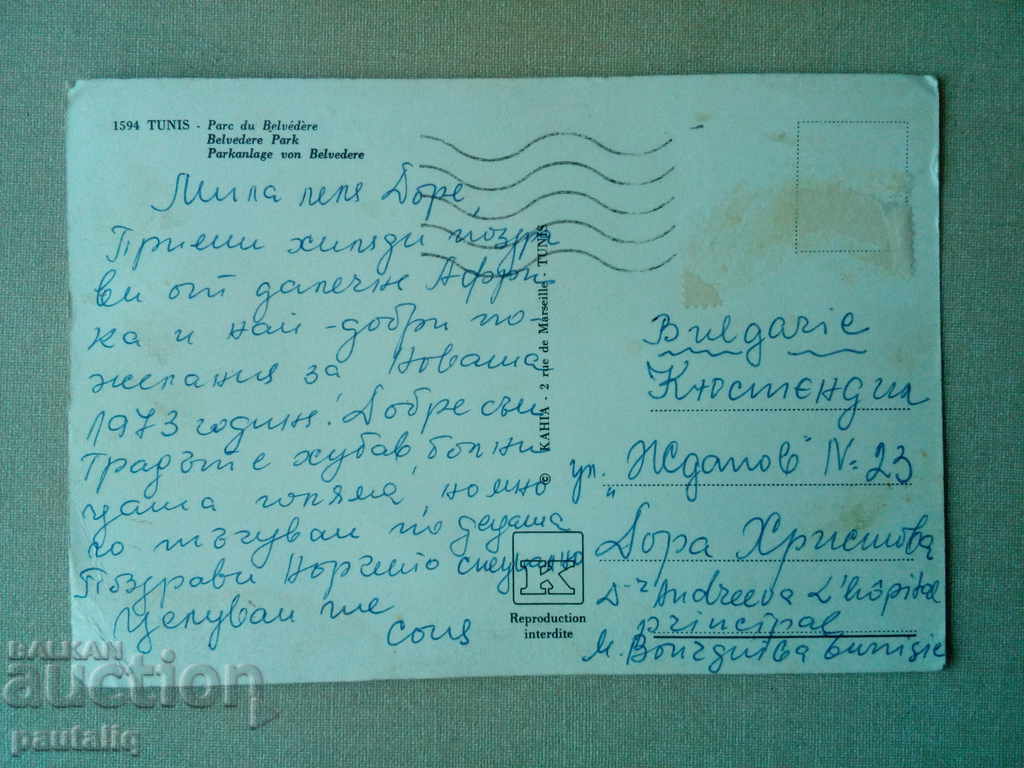 1594 TUNIS - Parc du Belvédère
Belvedere Park
Parkanlage von Belvedere
Мила леля Доре,
Приеми хиляди поздра
ви от далечн Афри,
ка и най-добри по-
желания за новата
1973 годин! Добре съм
Градът е хубав, болни
цата голяма, но мно
го тъгувам по децата
Поздрави Норчето специално
Целувам те
Соня
© KAHIA - 2 rue de Marseille - TUNIS
K
Reproduction
interdite
Bulgarie
Кюстендил
ул. „Жданов" № 23
Дора Христова
D-r Andreeva L'hôpital
principal
M. Bourguiba Tunisie
BALKAN
auction
pautaliq